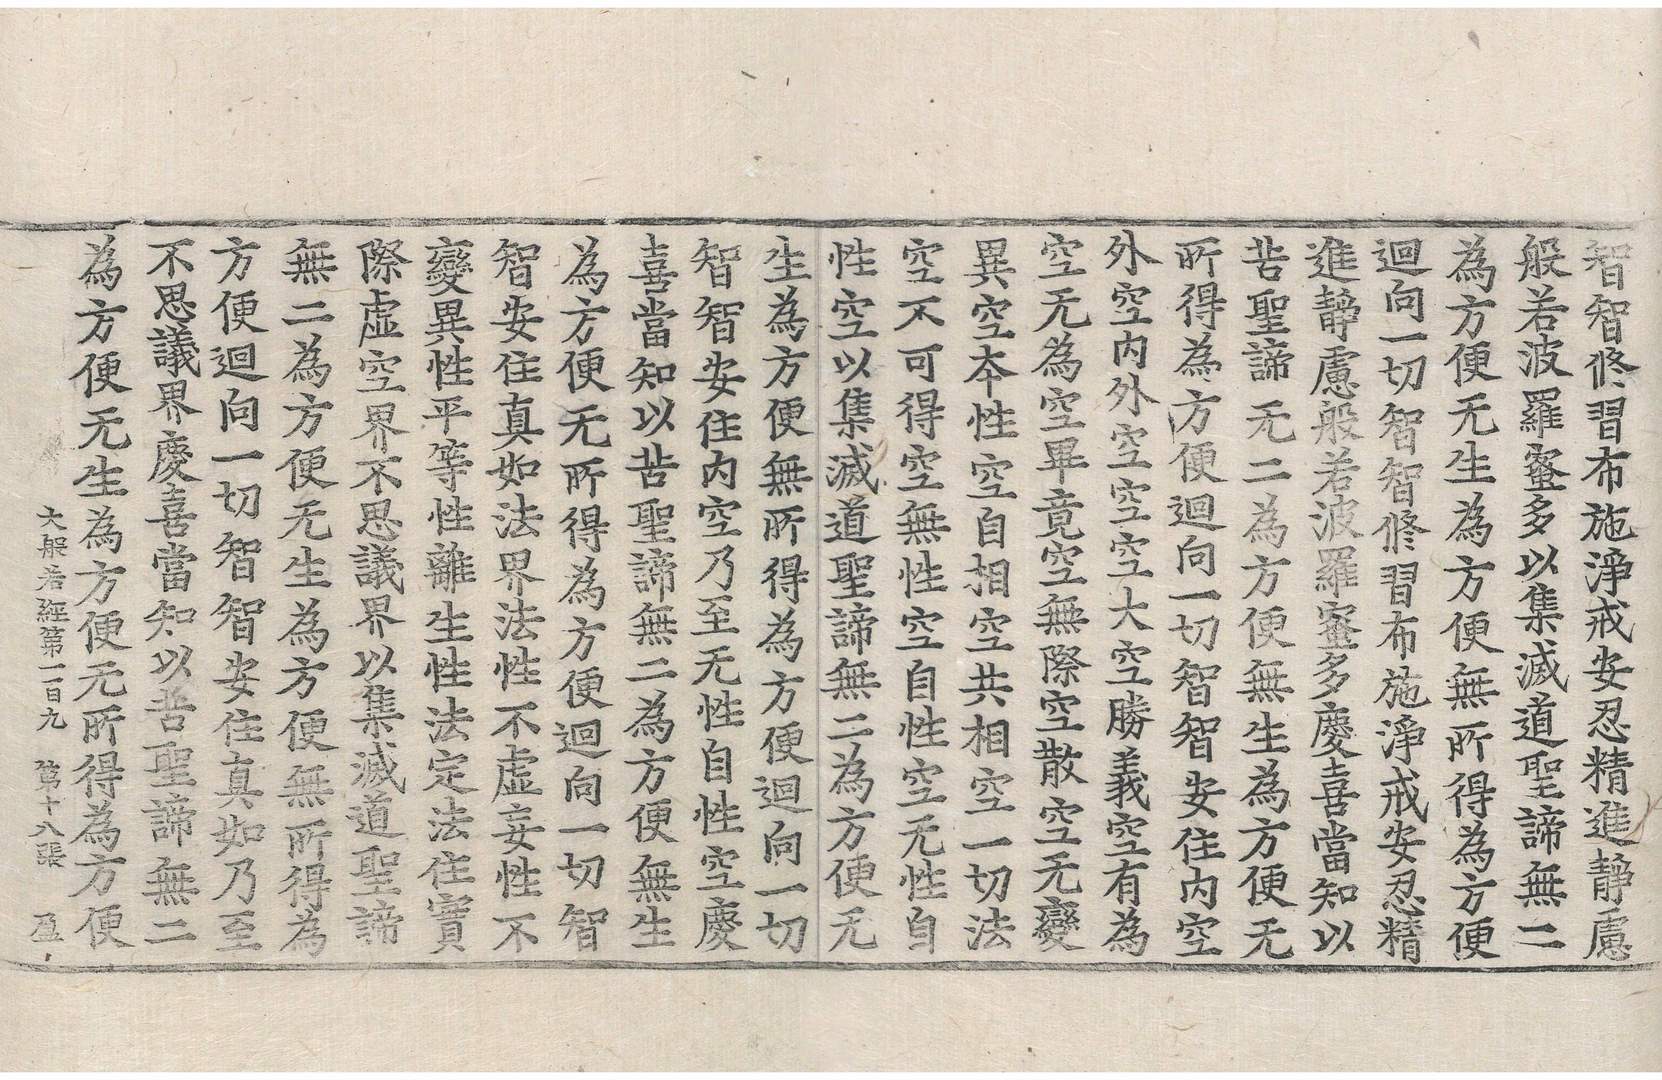 智智修習布施淨戒安忍精進靜慮
般若波羅蜜多以集滅道聖諦無二
為方便无生為方便無所得為方便
迴向一切智智修習布施淨戒安忍精
進靜慮般若波羅蜜多慶喜當知以
苦聖諦无二為方便無生為方便无
所得為方便迴向一切智智安住內空
外空內外空空空大空勝義空有為
空无為空畢竟空無際空散空无變
異空本性空自相空共相空一切法
空不可得空無性空自性空无性自
性空以集滅道聖諦無二為方便无
生為方便無所得為方便迴向一切
智智安住內空乃至无性自性空慶
喜當知以苦聖諦無二為方便無生
為方便无所得為方便迴向一切智
智安住真如法界法性不虛妄性不
變異性平等性離生性法定法住實
際虛空界不思議界以集滅道聖諦
無二為方便无生為方便無所得為
方便迴向一切智智安住真如乃至
不思議界慶喜當知以苦聖諦無二
為方便无生為方便无所得為方便
大般若經第一百九 第十八張 盈